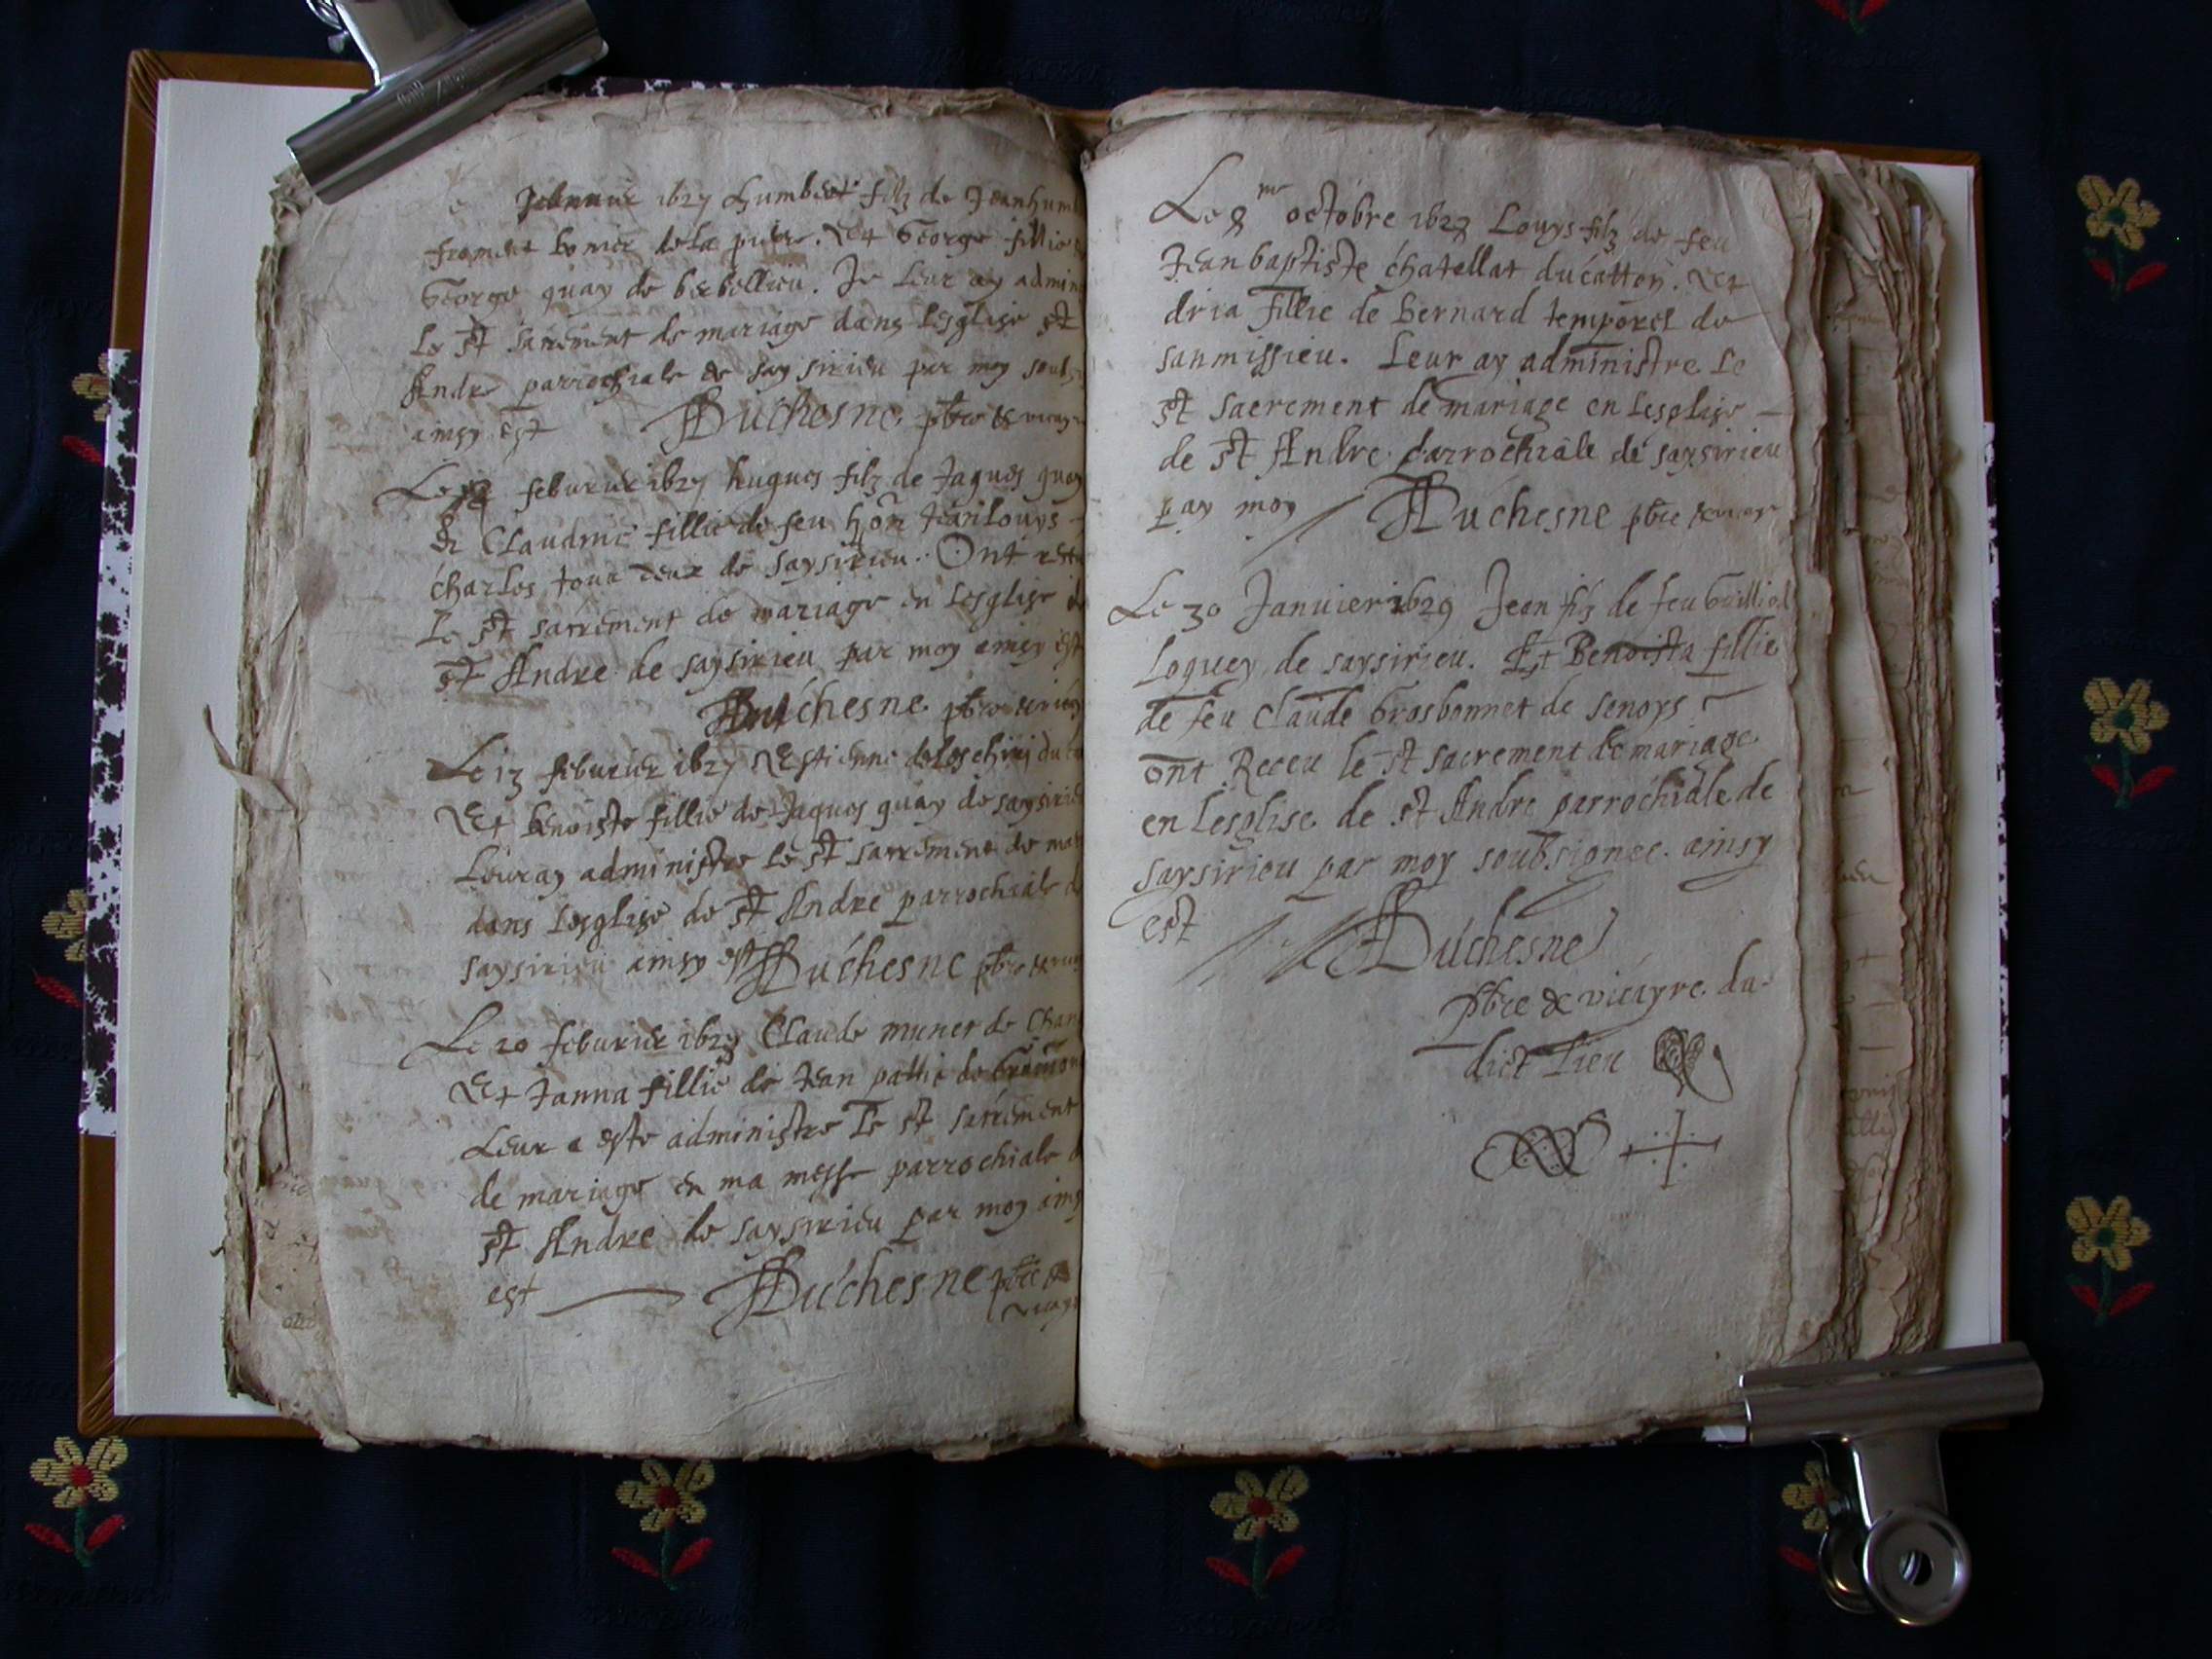 feburier 1627 Humbert filz de Jean hum
froment de la
George fillie
George quay de berbellieu. Je leur ay admin
Le st sacrement de mariage dans lesglise st
Andre parrochiale de saysirieu par moy soub
ainsy est Duchesne pbre & vicay
Le feburier 1627 hugues filz de Jaques quay
& Claudine fillie de feu hon Jean Louys
charles tous deux de saysirieu. Ont receu
Le st sacrement de mariage en Lesglise d
st Andre de saysirieu par moy ainsy est
Duchesne pbre & vicay
Le 13 feburier 1627 Estienne du
Et benoiste fillie de Jaques quay de saysirieu
Leur ay administre le st sacrement de mar
dans Lesglise de st Andre parrochiale d
saysirieu ainsy est Duchesne pbre & vicay
Le 20 feburier Claude muner de Chan
Et Janna fillie de Jean
Leur a este administre Le st sacrement
de mariage en ma messe parrochiale d
st Andre de saysirieu par moy ainsy
est Duchesne pbre &
vicay
Le 8me octobre 1628 Louys filz de feu
Jean baptiste chatellat du catton. Et
dria fillie de Bernard temporel de
sanmissieu. Leur ay administre Le
st sacrement de mariage en Lesglise
de st Andre parrochiale de saysirieu
par moy Duchesne pbre & vicay
Le 30 Januier 1629 Jean filz de feu
Loquey de saysirieu. Et Benoista fillie
de feu Claude Grosbonnet de senoys
ont Receu le st sacrement de mariage
en Lesglise de st Andre parrochiale de
saysirieu par moy soubsignee. ainsy
est Duchesne
Pbre & vicayre du-
dict Lieu